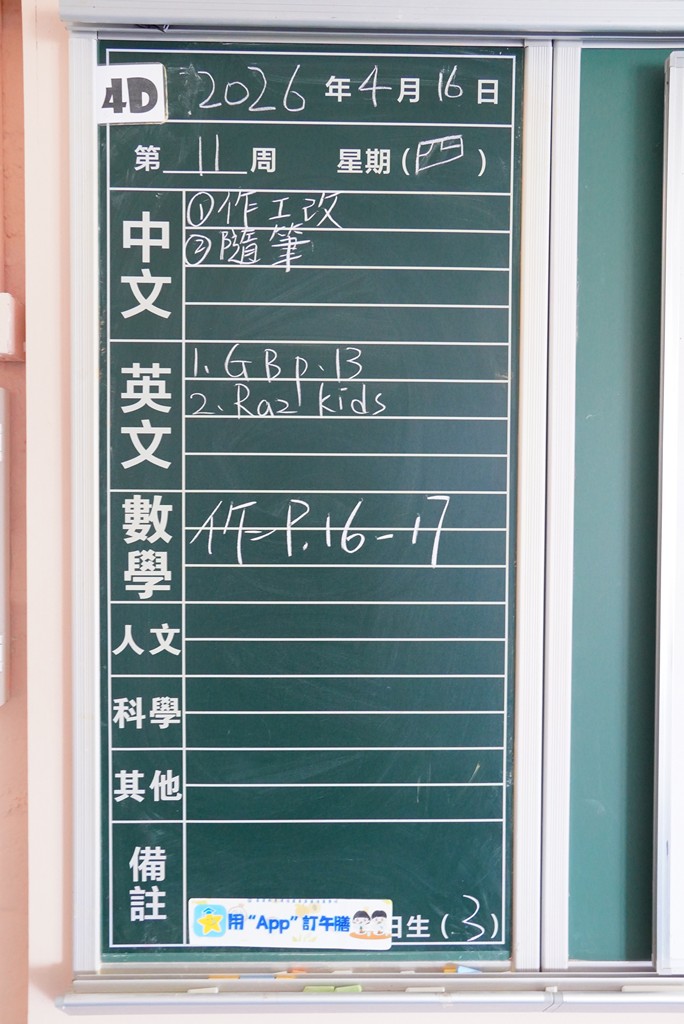 4D
2026年4月16日
第11周 星期(四)
中文
①作工改
②隨筆
英文
1. GB p.13
2. Raz kids
數學
作=P.16-17
人文
科學
其他
備註
用“App”訂午膳
日生(3)